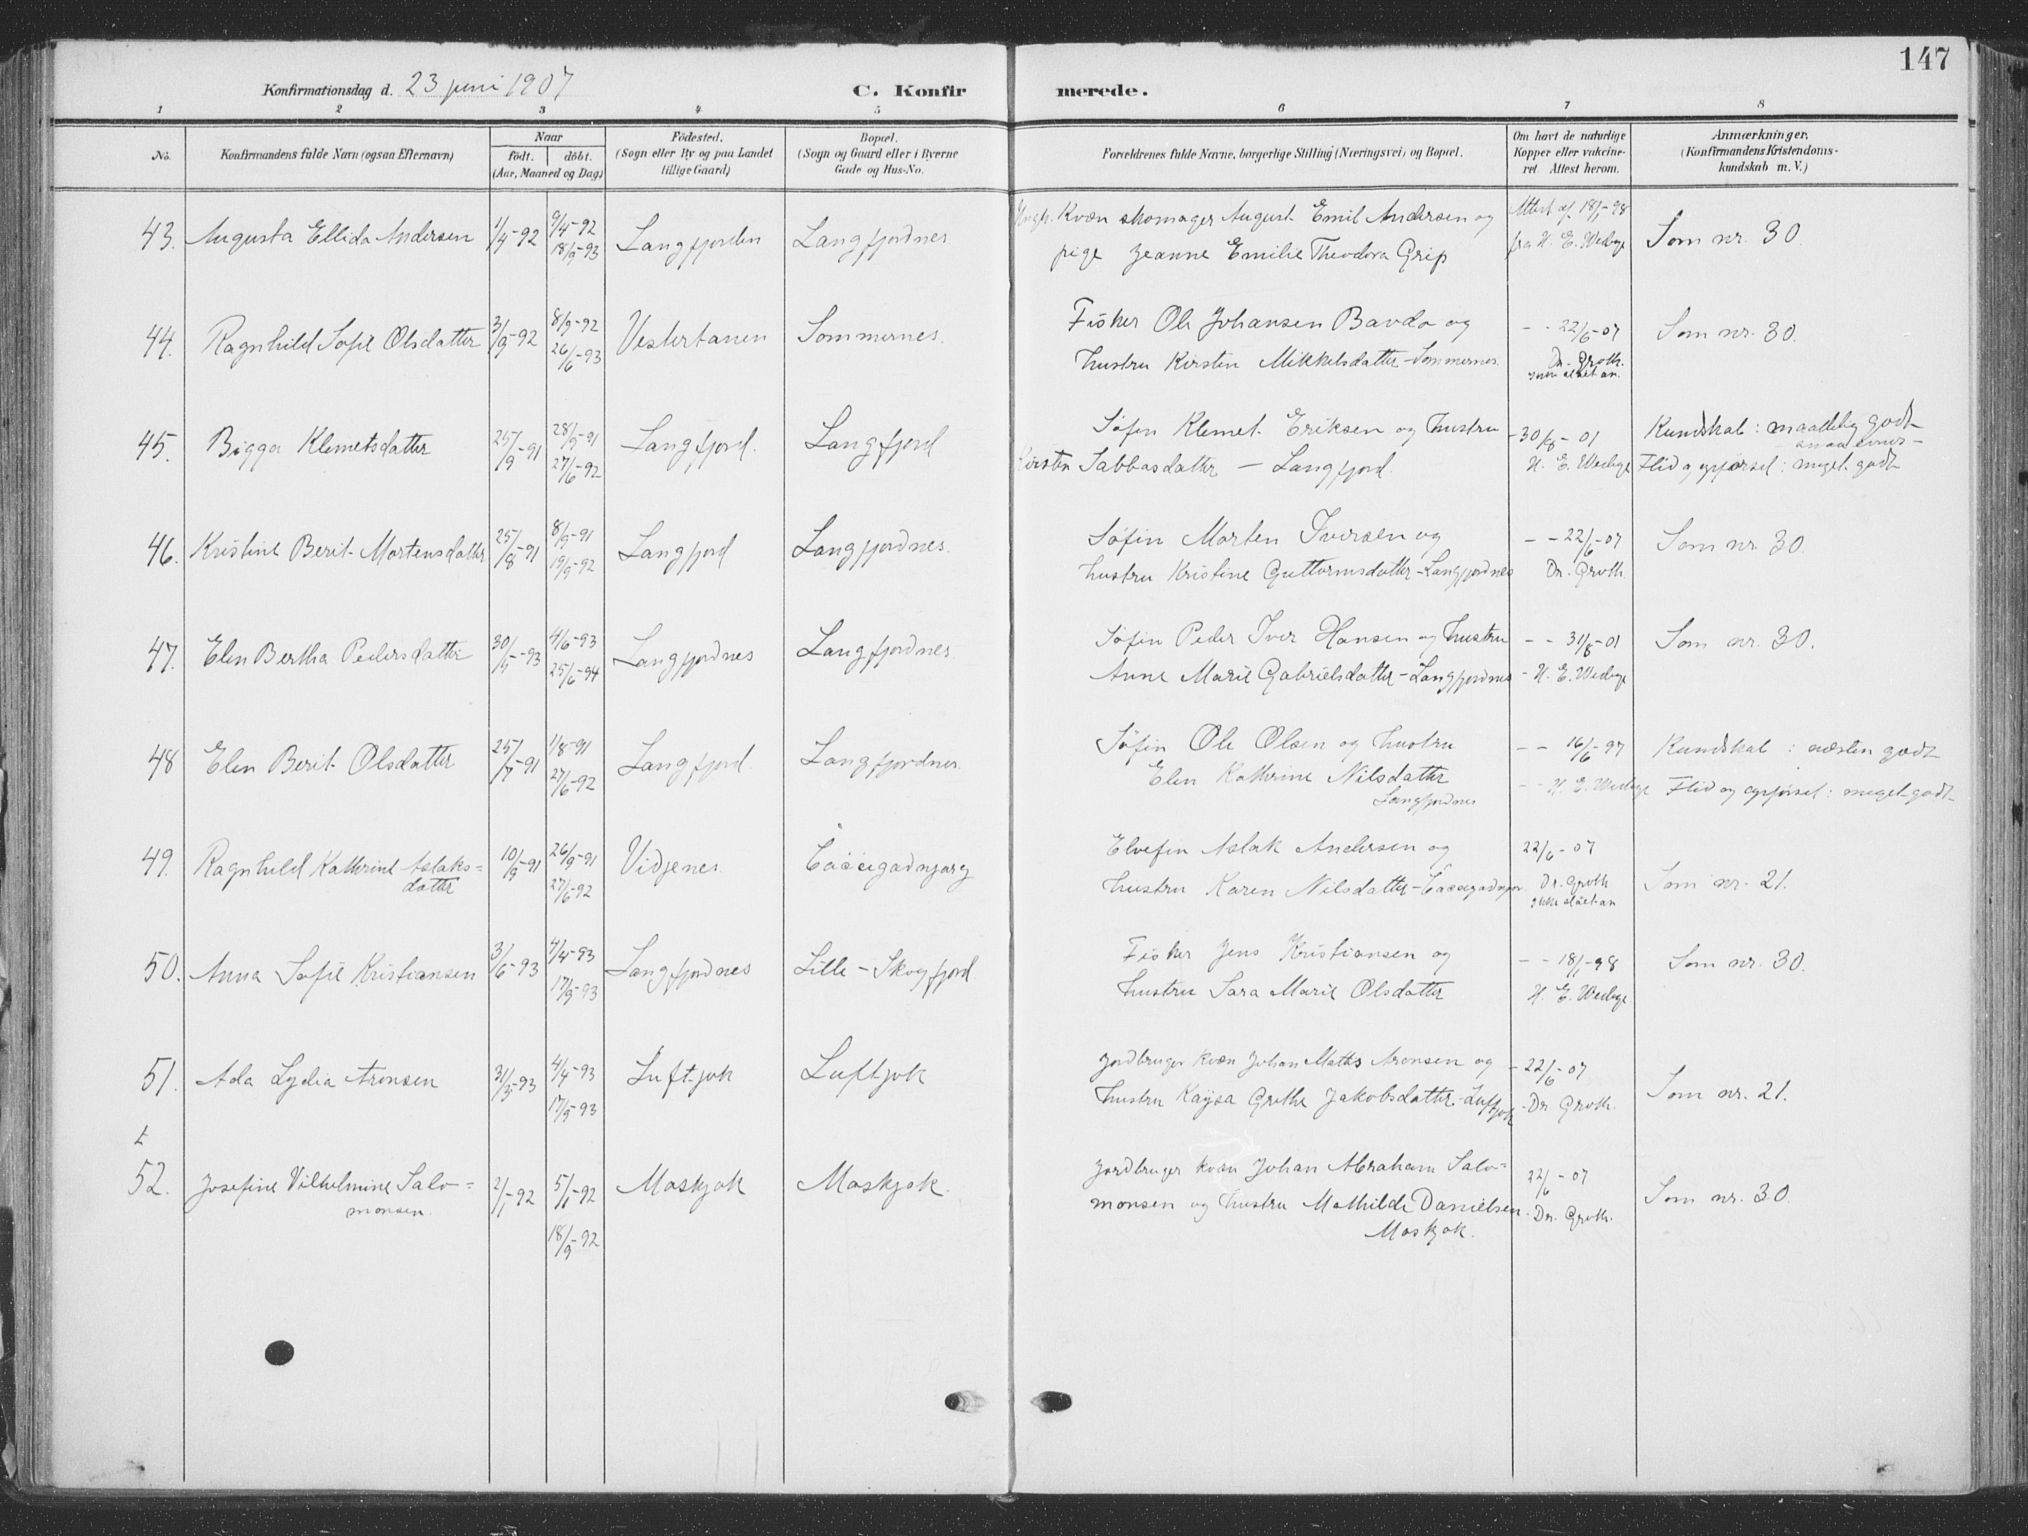 147
Konfirmationsdag d. 23 juni 1907
C. Konfirmerede.
1 2 3 4 5 6 7 8
No.
Konfirmandens fulde Navn (ogsaa Efternavn)
Naar
födt. döbt.
(Aar, Maaned og Dag)
Födested.
(Sogn eller By og paa Landet
tillige Gaard)
Bopæl.
(Sogn og Gaard eller i Byerne
Gade og Hus-No.
Forældrenes fulde Navne, borgerlige Stilling (Næringsvei) og Bopæl.
Om havt de naturlige
Kopper eller vakcine-
ret. Attest herom.
Anmærkninger.
(Konfirmandens Kristendoms-
kundskab m. V.)
43. Augusta Ellida Andersen 1/4-92 9/4-92 Langfjorden Langfjordnes Ungk. Kvæn skomager August Emil Andersen og Attest af 18/1-98
18/9-93 pige Jeanne Emilie Theodora Grip fra H. E. Wesbye Som nr. 30.
44. Ragnhild Sofie Olsdatter 3/9-92 8/9-92 Vestertanen Sommernes. Fisker Ole Johansen Bavda og - - 22/6-07 Som nr. 30.
26/6-93 hustru Kirsten Mikkelsdatter - Sommernes. Dr. Groth.
ikke slaaet an.
45. Bigga Klemetsdatter 25/9-91 28/9-91 Langfjord. Langfjord Søfin Klemet Eriksen og hustru -30/8-01 Kundskab: maadelig godt
smaa evner-
27/6-92 Kirsten Sabbasdatter - Langfjord. H. E. Wesbye Flid og opførsel: meget godt
46. Kristine Berit Mortensdatter 25/8-91 8/9-91 Langfjord Langfjordnes. Søfin Morten Iversen og - - 22/6-07 Som nr. 30.
19/9-92 hustru Kristine Guttormsdatter - Langfjordnes Dr. Groth.
47. Elen Bertha Pedersdatter 30/5-93 4/6-93 Langfjordnes Langfjordnes. Søfin Peder Iver Hansen og hustru - - 31/8-01 Som nr. 30.
25/6-94 Anne Marie Gabrielsdatter - Langfjordnes - H. E. Wesbye
48 Elen Berit Olsdatter 25/7-91 1/8-91 Langfjord. Langfjordnes. Søfin Ole Olsen og hustru - - 16/6-97 Kundskab: næsten godt
27/6-92 Elen Kathrine Nilsdatter - - H. E. Wesbye Flid og opførsel: meget godt
Langfjordnes
49. Ragnhild Kathrine Aslaks= 10/9-91 26/9-91 Vidjenes. Elvefin Aslak Andersen og 22/6-07
datter 27/6-92 hustru Karen Nilsdatter - Dr. Groth Som nr. 21.
ikke slaaet an
50. Anna Sofie Kristiansen 3/6-93 4/4-93 Langfjordnes Lille-Skogfjord. Fisker Jens Kristiansen og - - 18/1-98 Som nr. 30.
17/9-93 hustru Sara Marie Olsdatter H. E. Wesbye
51. Ada Lydia Aronsen 31/3-93 4/4-93 Luftjok Luftjok Jordbruger kvæn Johan Mathis Aronsen og - 22/6-07
17/9-93 hustru Kaysa Grethe Jakobsdatter - Luftjok - Dr. Groth. Som nr. 21.
t
52. Josefine Vilhelmine Salo= 2/1-92 5/1-92 Maskjok Maskjok. Jordbruger kvæn Johan Abraham Salo= 22/6-07
monsen. 18/9-92 monsen og hustru Mathilde Danielsen - Dr. Groth. Som nr. 30.
Maskjok.